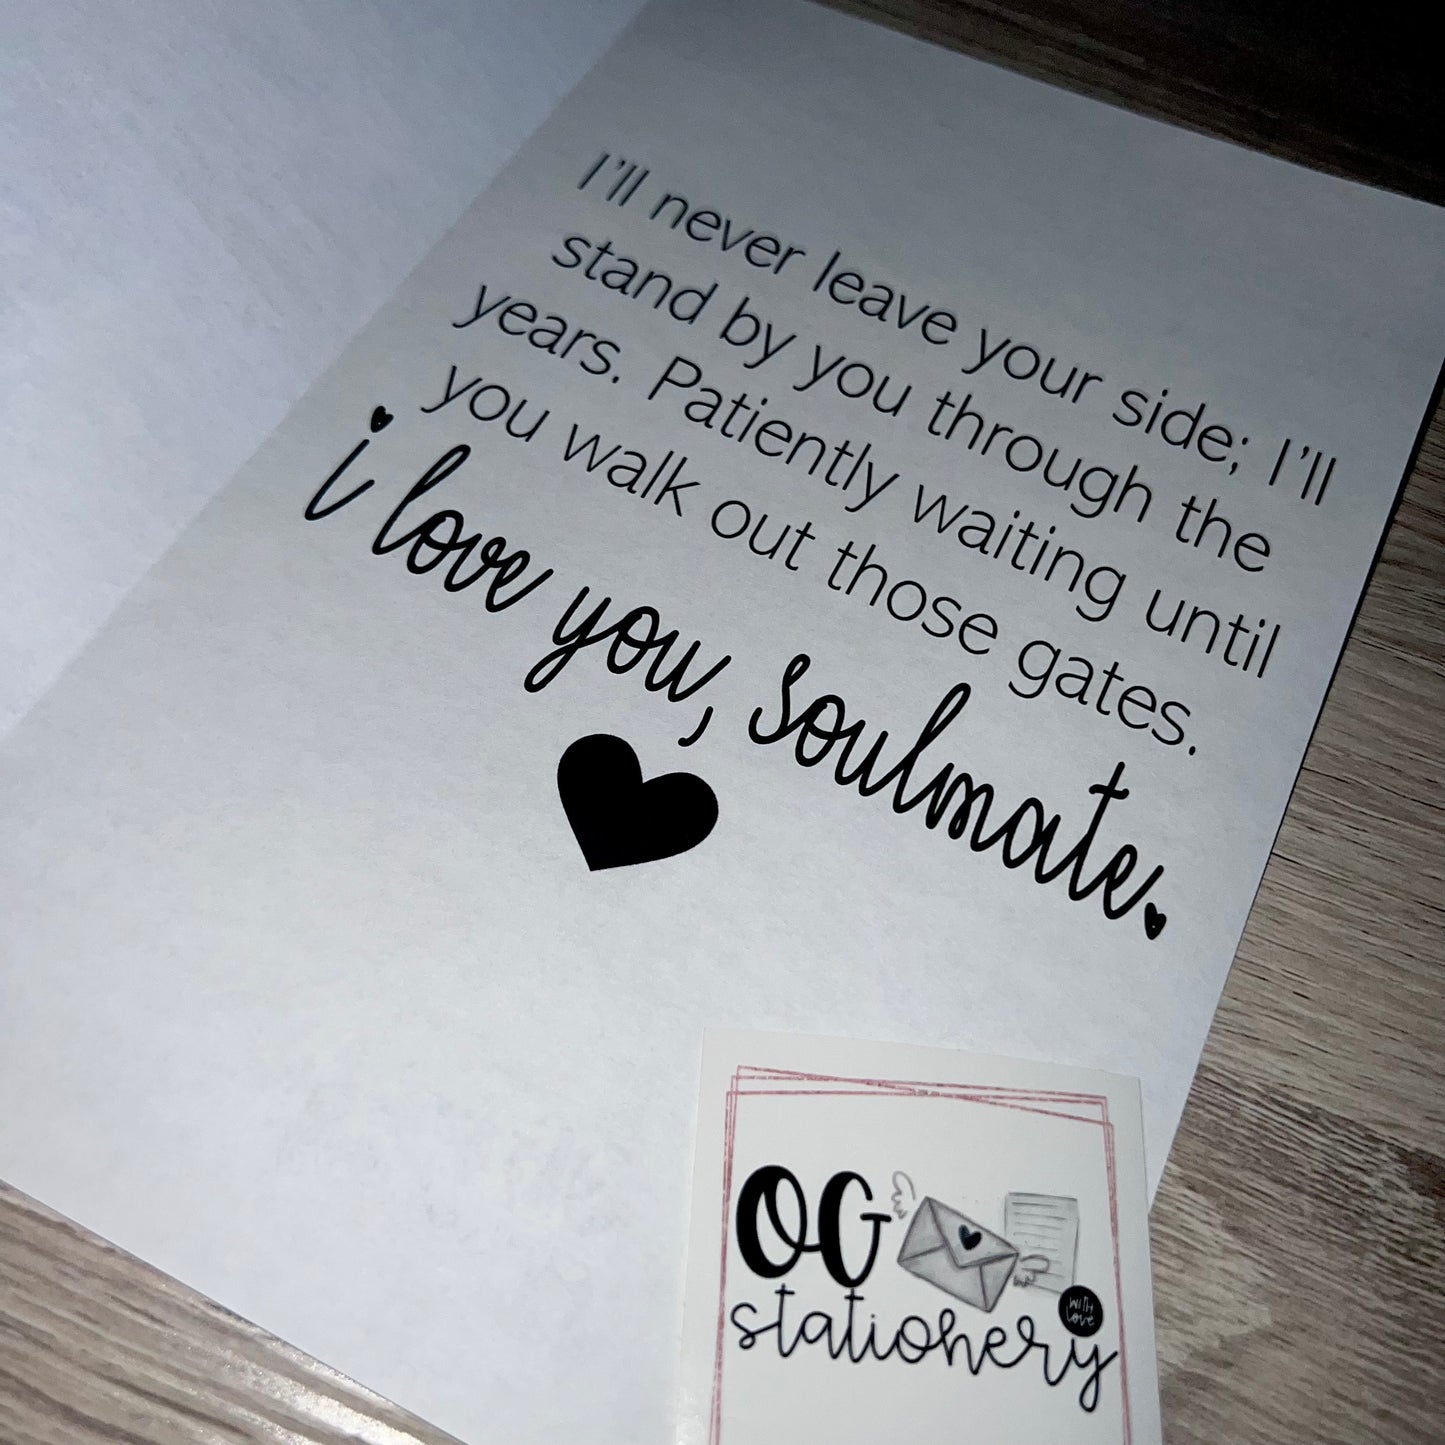 I'll never leave your side; I'll
stand by you through the
years. Patiently waiting until
you walk out those gates.
i love you, soulmate.
OG
stationery
WITH
Love